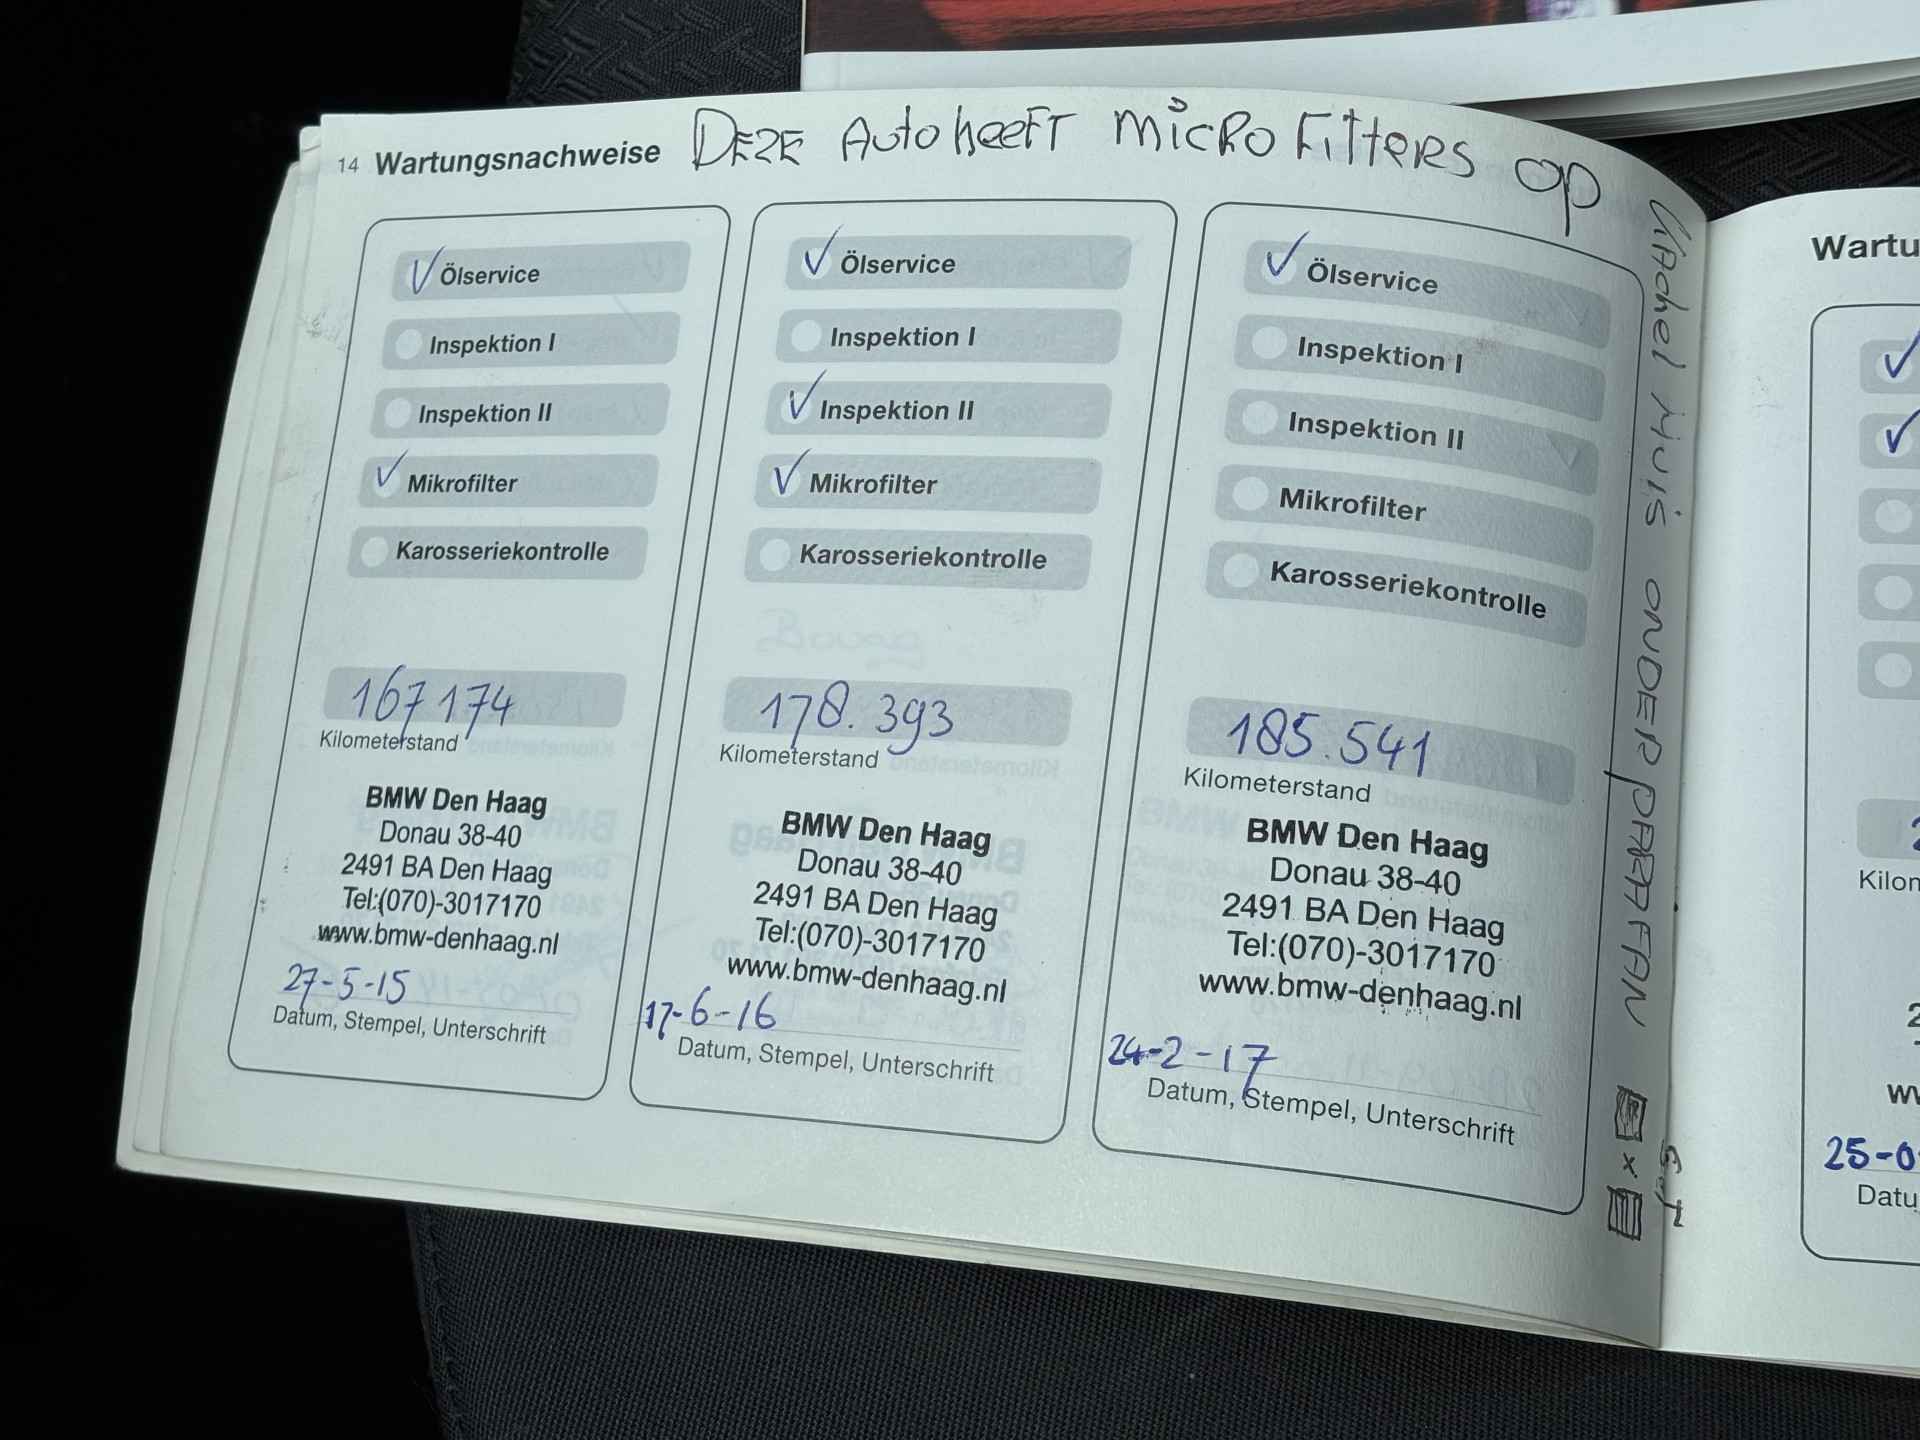 14 Wartungsnachweise
DEZE Auto heeft microfilters op
kachel huis onder paraffan
x
set
Ölservice
Inspektion I
Inspektion II
Mikrofilter
Karosseriekontrolle
167174
Kilometerstand
BMW Den Haag
Donau 38-40
2491 BA Den Haag
Tel:(070)-3017170
www.bmw-denhaag.nl
27-5-15
Datum, Stempel, Unterschrift
Ölservice
Inspektion I
Inspektion II
Mikrofilter
Karosseriekontrolle
178.393
Kilometerstand
BMW Den Haag
Donau 38-40
2491 BA Den Haag
Tel:(070)-3017170
www.bmw-denhaag.nl
17-6-16
Datum, Stempel, Unterschrift
Ölservice
Inspektion I
Inspektion II
Mikrofilter
Karosseriekontrolle
185.541
Kilometerstand
BMW Den Haag
Donau 38-40
2491 BA Den Haag
Tel:(070)-3017170
www.bmw-denhaag.nl
24-2-17
Datum, Stempel, Unterschrift
Wartu
Kilon
25-0
Datu